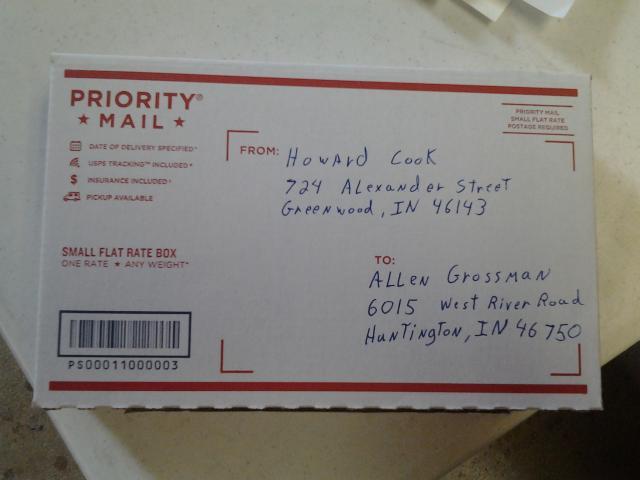 PRIORITY®
★ MAIL ★
DATE OF DELIVERY SPECIFIED*
USPS TRACKING™ INCLUDED*
$ INSURANCE INCLUDED*
PICKUP AVAILABLE
SMALL FLAT RATE BOX
ONE RATE ★ ANY WEIGHT*
PS00011000003
PRIORITY MAIL
SMALL FLAT RATE
POSTAGE REQUIRED
FROM: Howard Cook
724 Alexander Street
Greenwood, IN 46143
TO:
Allen Grossman
6015 West River Road
Huntington, IN 46750